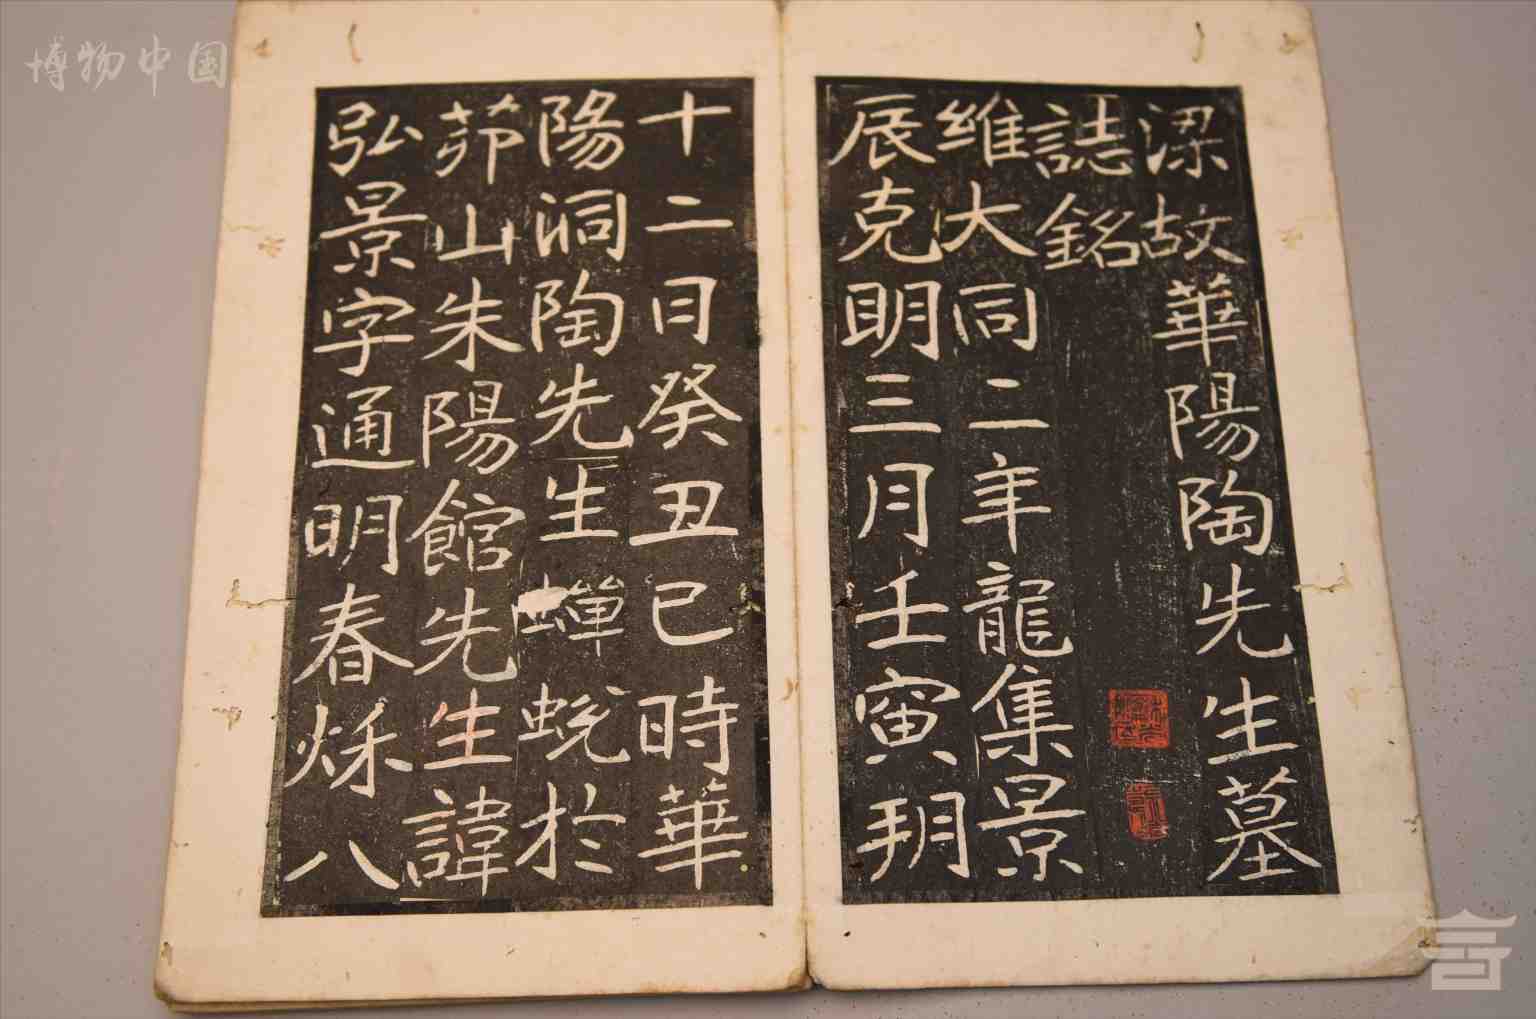 梁故華陽陶先生墓
誌銘
維大同二年龍集景
辰克明三月壬寅朔
十二日癸丑已時華
陽洞陶先生蟬蛻於
茆山朱陽館先生諱
弘景字通明春秌八
博物中国